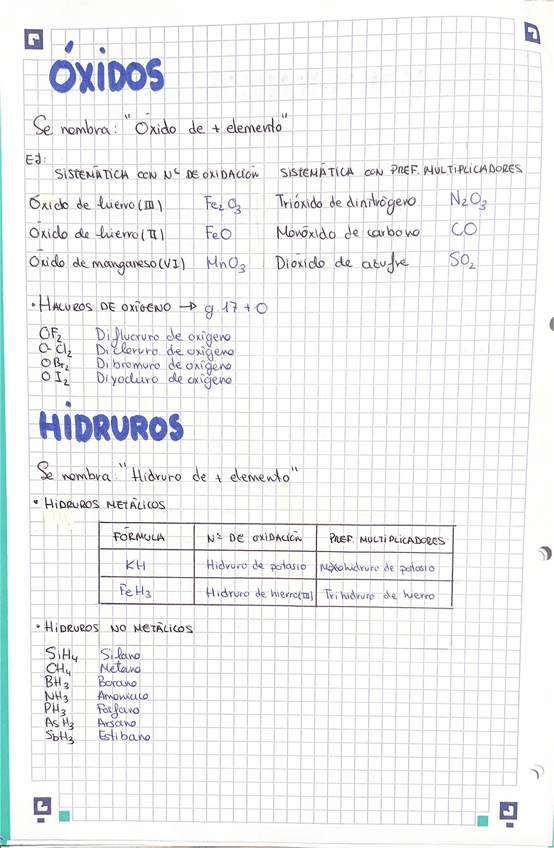 ÓXIDOS
Se nombra: "Óxido de + elemento"
EJ:
SISTEMÁTICA CON Nº DE OXIDACIÓN SISTEMÁTICA CON PREF. MULTIPLICADORES
Óxido de hierro (III) Fe₂O₃ Trióxido de dinitrógeno N₂O₃
Óxido de hierro (II) FeO Monóxido de carbono CO
Óxido de manganeso (VI) MnO₃ Dióxido de azufre SO₂
• HALUROS DE OXÍGENO → g.17 + O
OF₂ Difluoruro de oxígeno
OCl₂ Dicloruro de oxígeno
OBr₂ Dibromuro de oxígeno
OI₂ Diyoduro de oxígeno
HIDRUROS
Se nombra: "Hidruro de + elemento"
• HIDRUROS METÁLICOS
FÓRMULA Nº DE OXIDACIÓN PREF. MULTIPLICADORES
KH Hidruro de potasio Monohidruro de potasio
FeH₃ Hidruro de hierro (III) Trihidruro de hierro
• HIDRUROS NO METÁLICOS
SiH₄ Silano
CH₄ Metano
BH₃ Borano
NH₃ Amoniaco
PH₃ Fosfano
AsH₃ Arsano
SbH₃ Estibano